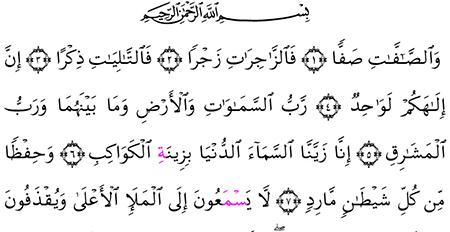 بِسْمِ اللَّهِ الرَّحْمَٰنِ الرَّحِيمِ
وَالصَّـٰٓفَّـٰتِ صَفًّا ﴿١﴾ فَالزَّٰجِرَٰتِ زَجْرًا ﴿٢﴾ فَالتَّـٰلِيَـٰتِ ذِكْرًا ﴿٣﴾ إِنَّ
إِلَـٰهَكُمْ لَوَاحِدٌ ﴿٤﴾ رَبُّ السَّمَـٰوَٰتِ وَالْأَرْضِ وَمَا بَيْنَهُمَا وَرَبُّ
الْمَشَـٰرِقِ ﴿٥﴾ إِنَّا زَيَّنَّا السَّمَآءَ الدُّنْيَا بِزِينَةِ الْكَوَاكِبِ ﴿٦﴾ وَحِفْظًا
مِّن كُلِّ شَيْطَـٰنٍ مَّارِدٍ ﴿٧﴾ لَا يَسْمَعُونَ إِلَى الْمَلَإِ الْأَعْلَىٰ وَيُقْذَفُونَ